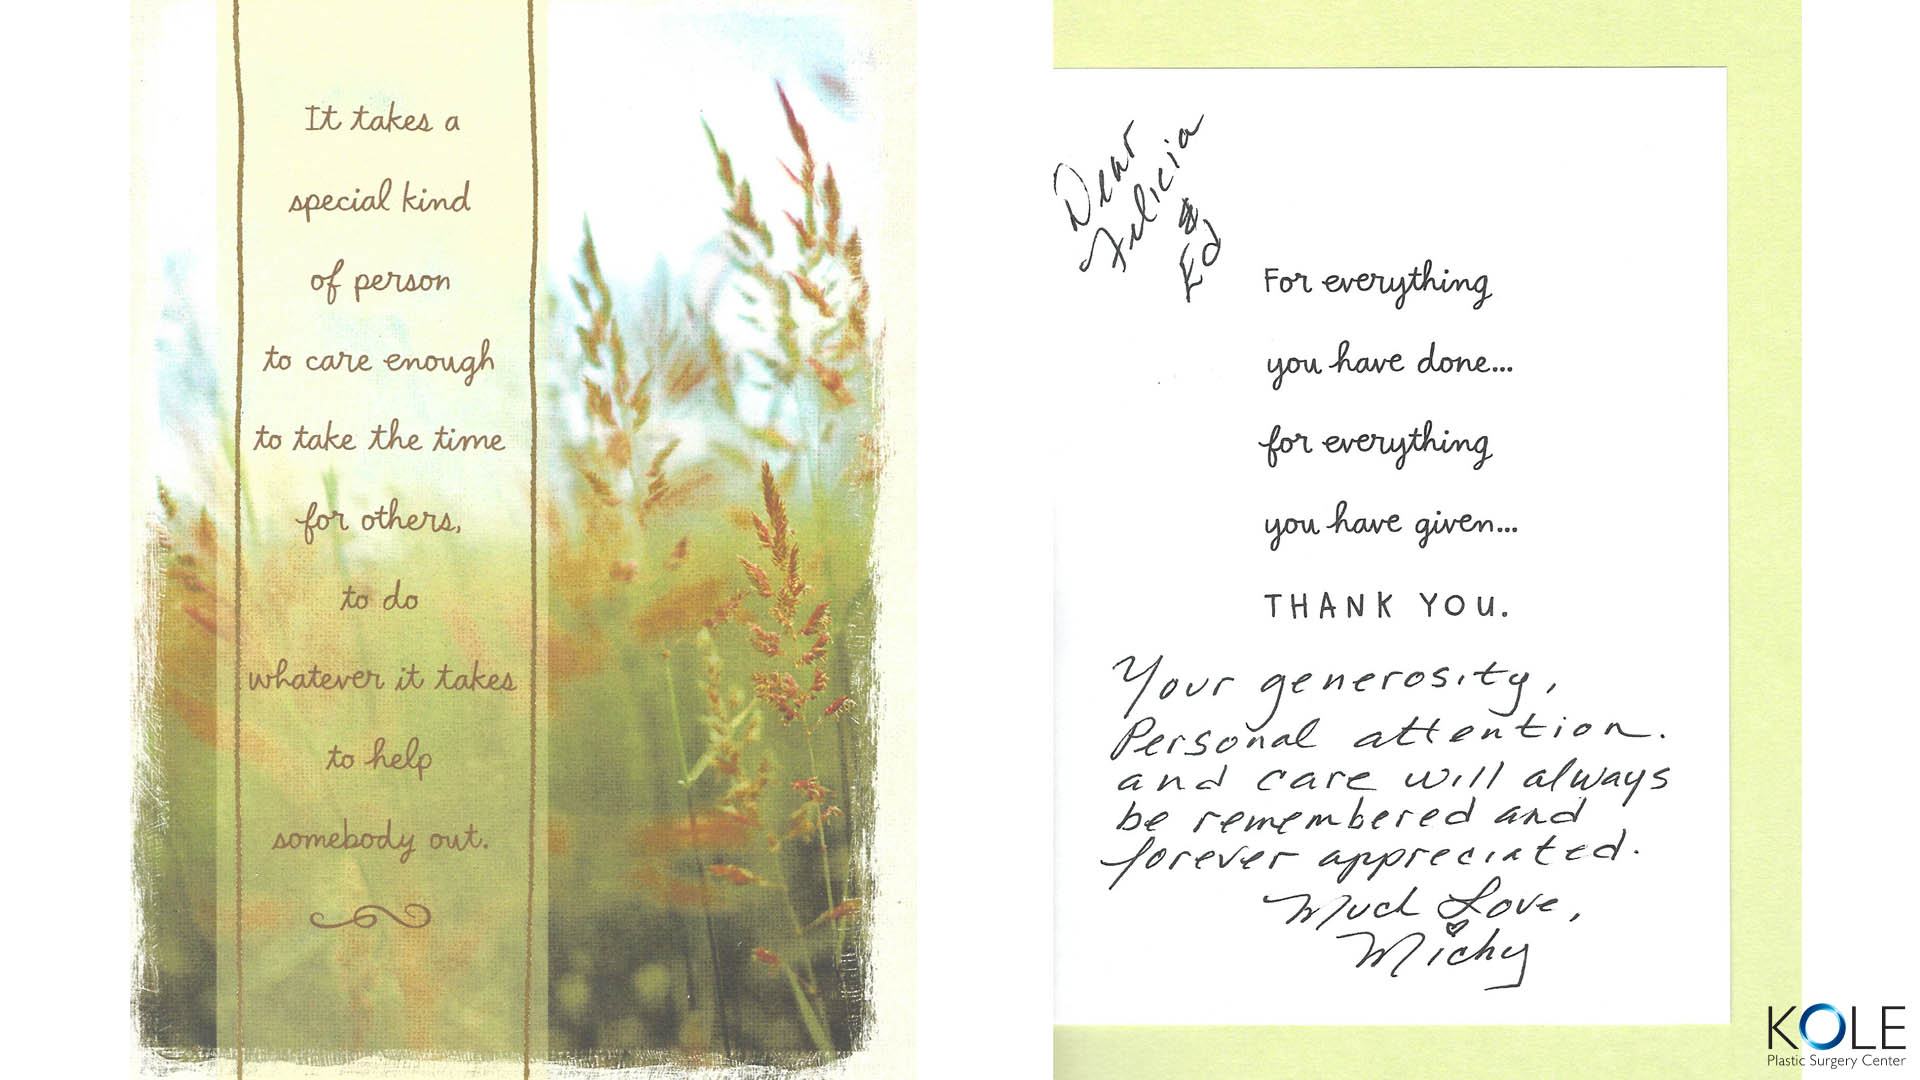 It takes a
special kind
of person
to care enough
to take the time
for others,
to do
whatever it takes
to help
somebody out.
Dear
Felicia
& Ed
For everything
you have done...
for everything
you have given...
THANK YOU.
Your generosity,
Personal attention.
and care will always
be remembered and
forever appreciated.
Much Love,
Michy
KOLE
Plastic Surgery Center